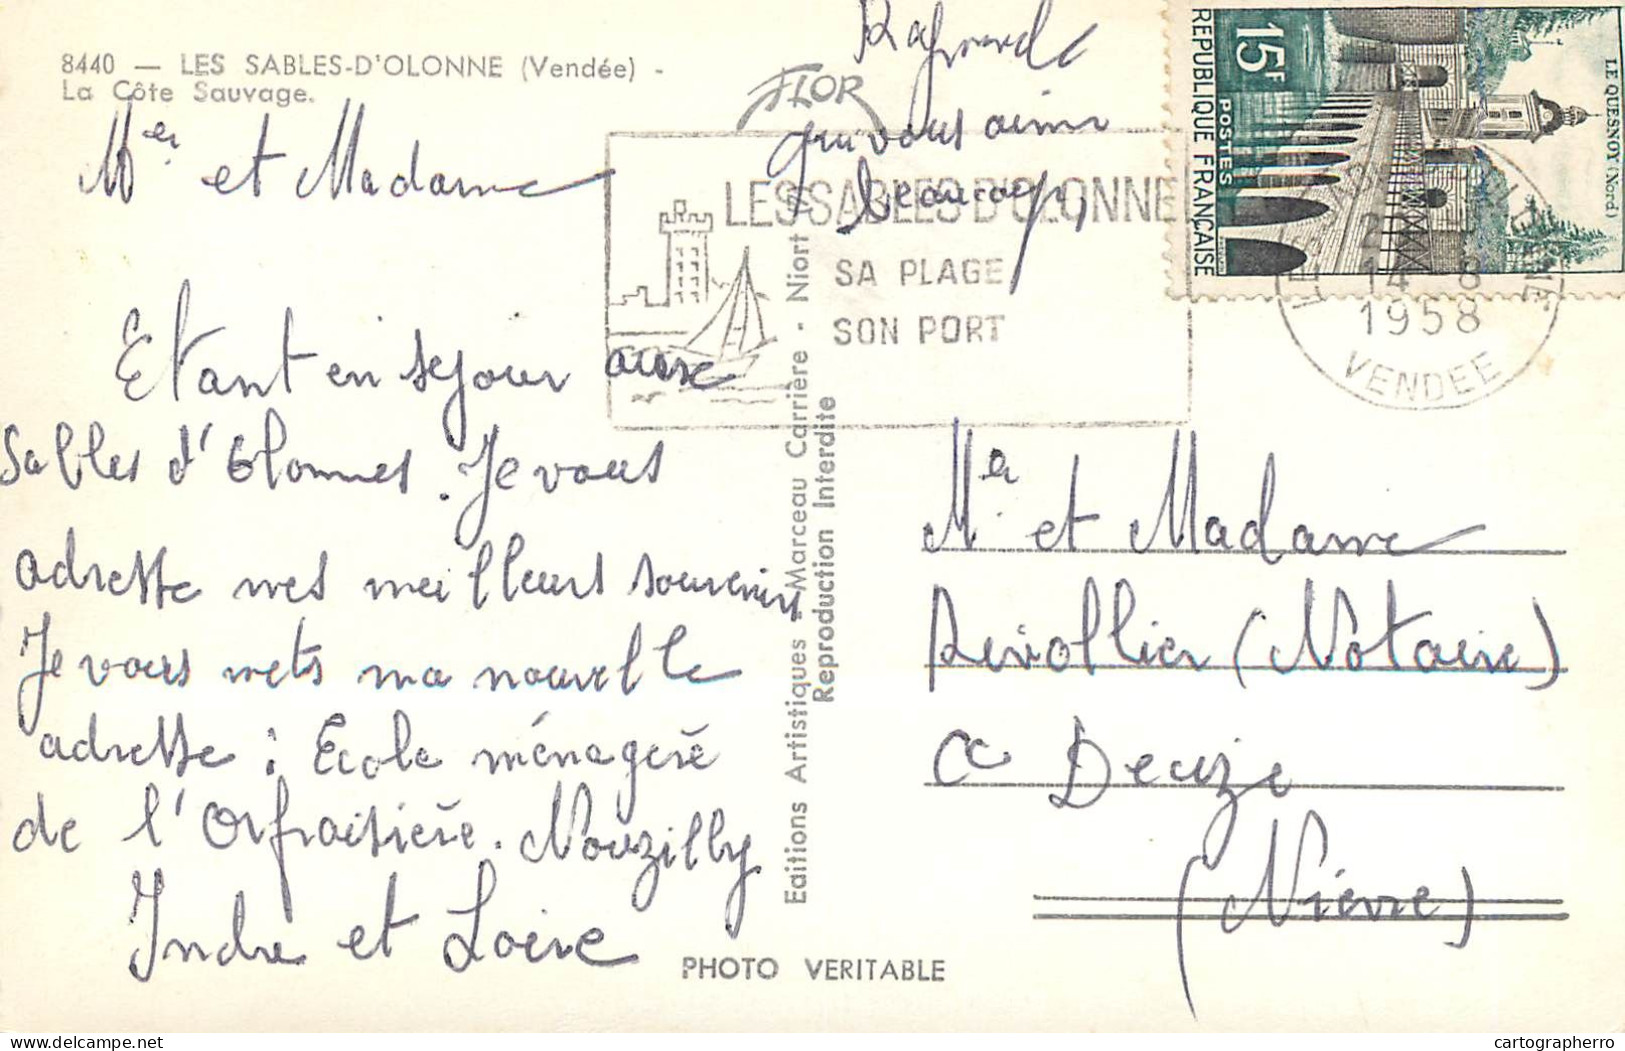 8440 — LES SABLES-D'OLONNE (Vendée) -
La Côte Sauvage.
FLOR
Mer et Madame
Etant en sejour aux
Sables d'Olonnes. Je vous
adresse mes meilleurs souvenirs
Je vous mets ma nouvelle
adresse : Ecole ménagère
de l'Orfraisière. Nouzilly
Indre et Loire
Raymonde
qui vous aime
beaucoup,
LES SABLES D'OLONNE
SA PLAGE
SON PORT
Editions Artistiques - Marceau Carrière - Niort
Reproduction Interdite
PHOTO VERITABLE
15F
POSTES
REPUBLIQUE FRANÇAISE
LE QUESNOY (Nord)
14 8
1958
VENDEE
Mr et Madame
Revollier (Notaire)
a Decize
(Nièvre)
cartographerro